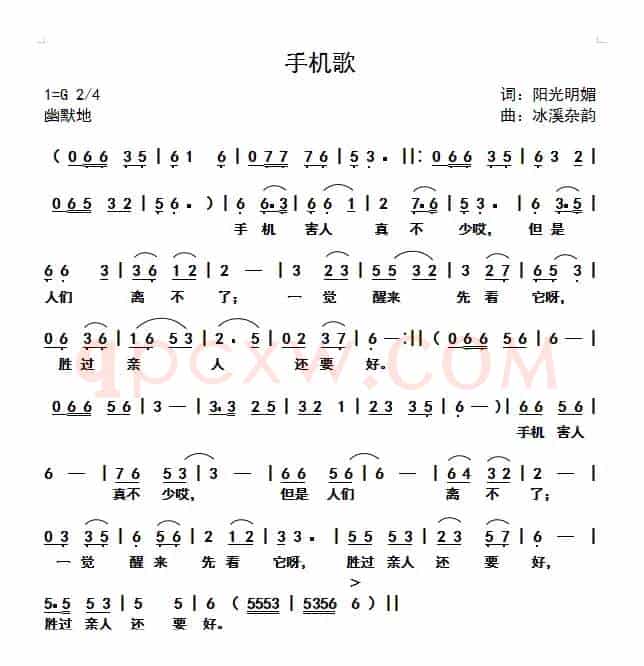 手机歌
1=G 2/4
词：阳光明媚
幽默地
曲：冰溪杂韵
( 066 35 | 61 6 | 077 76 | 53· ||: 066 35 | 63 2 |
065 32 | 56· ) | 6 6·3 | 66 1 | 2 7·6 | 53· | 6 3·5 |
手 机 害人 真 不 少哎， 但 是
66 3 | 36 12 | 2 — | 3 23 | 55 32 | 3 27 | 65 3 |
人们 离 不 了； 一 觉 醒来 先 看 它呀，
06 36 | 16 53 | 2· 5 | 02 37 | 6 —:|| ( 066 56 |
胜过 亲 人 还 要 好。
qpcxw.COM
066 56 | 3 — | 3·3 25 | 32 1 | 23 35 | 6 — ) | 66 56 |
手机 害人
6 — | 76 53 | 3 — | 66 56 | 6 — | 64 32 | 2 — |
真不 少哎， 但是 人们 离 不 了；
03 35 | 6 56 | 2 12 | 33· | 55 53 | 23 57 | 6 — |
一 觉 醒 来 先 看 它呀， 胜过 亲人 还 要 好，
>
5·5 53 | 5 5 | 6 ( 5553 | 5356 6 ) ||
胜过 亲人 还 要 好。